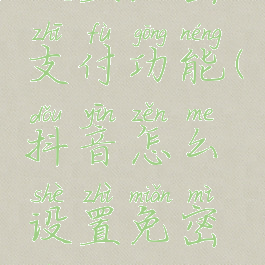 zhī fù gōng néng
支付功能(
dǒu yīn zěn me
抖音怎么
shè zhì miǎn mì
设置免密